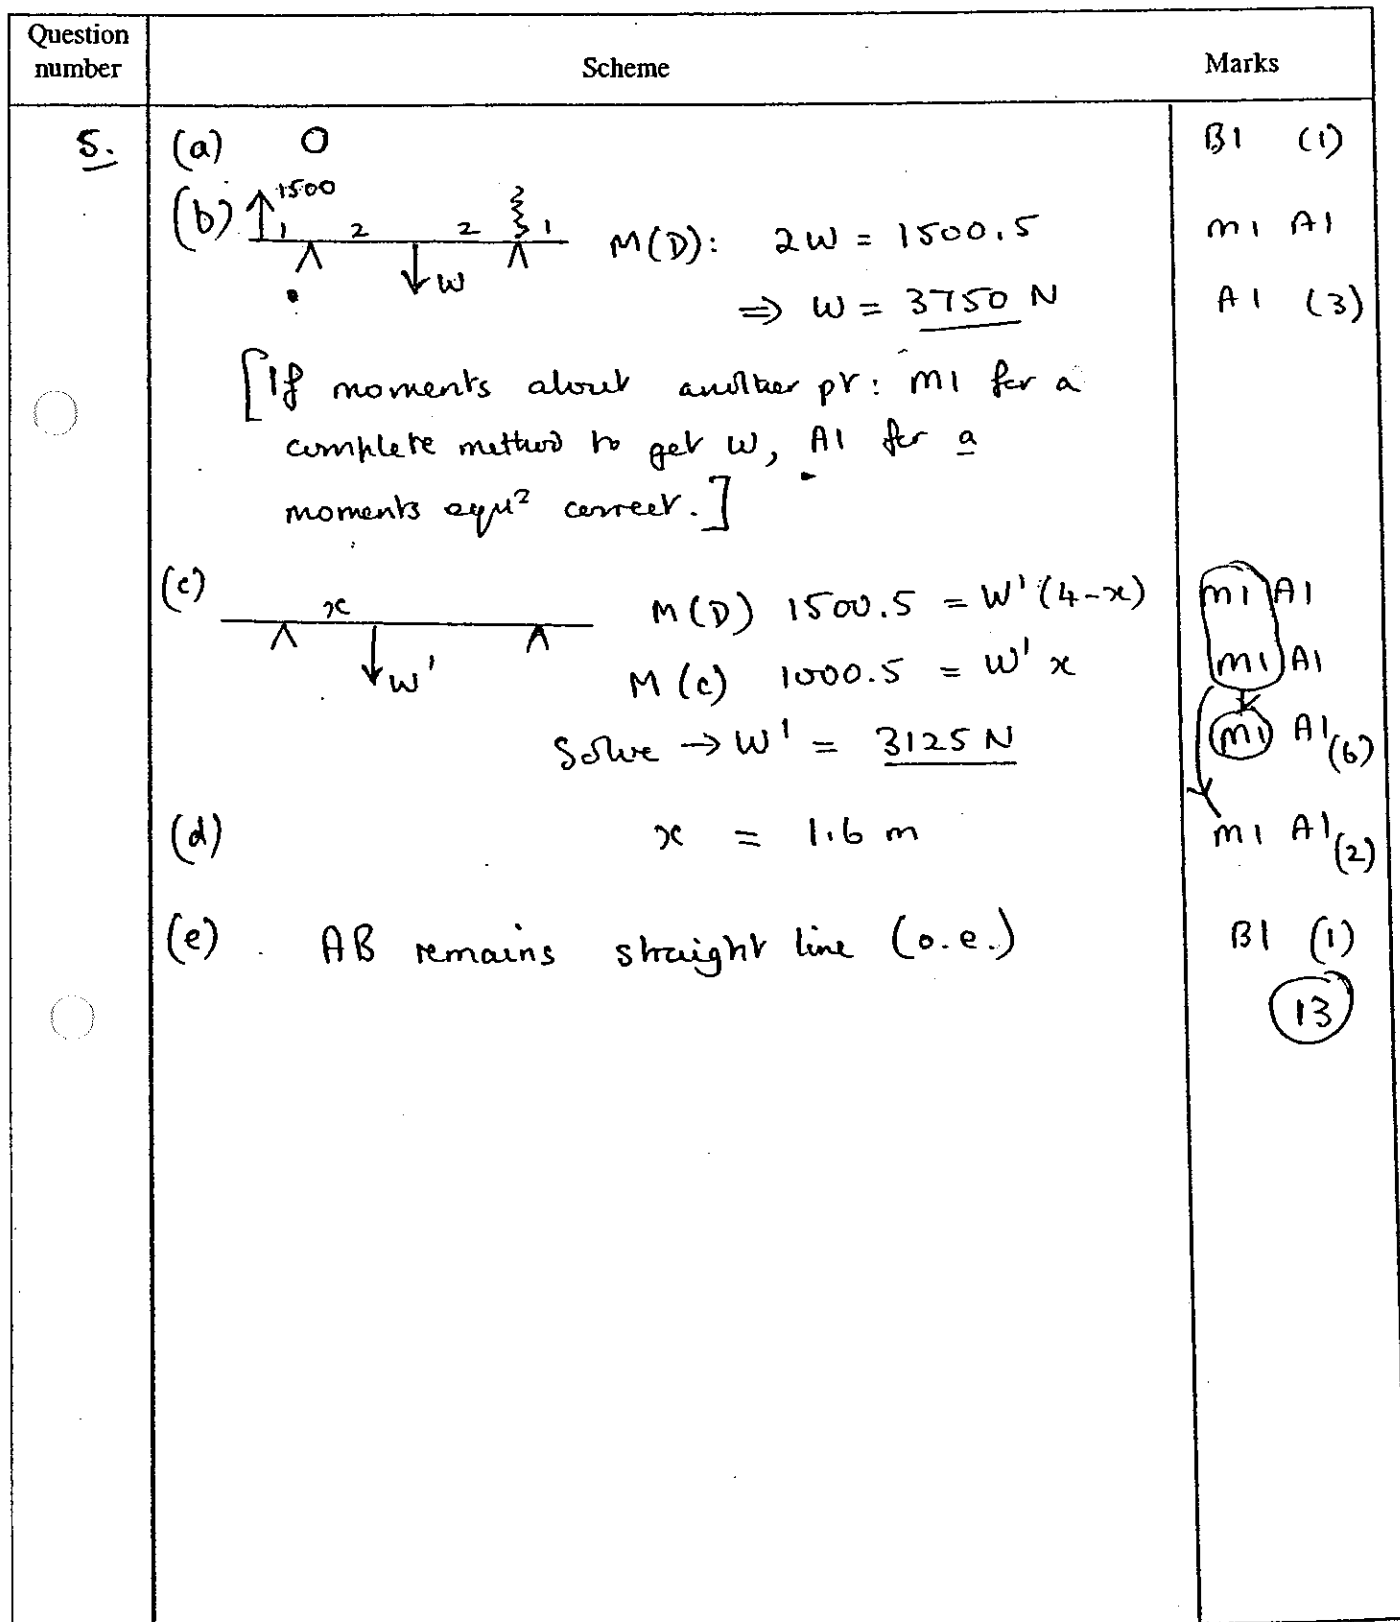 Question number Scheme Marks
5. (a) 0 B1 (1)
(b) 1500 1 2 2 1 W M(D): 2W = 1500.5 M1 A1
⇒ W = 3750 N A1 (3)
[If moments about another pt: M1 for a
complete method to get W, A1 for a
moments equ² correct.]
(c) x W' M(D) 1500.5 = W'(4-x) M1 A1
M(c) 1000.5 = W'x M1 A1
Solve → W' = 3125 N M1 A1 (6)
(d) x = 1.6 m M1 A1 (2)
(e) AB remains straight line (o.e.) B1 (1)
13